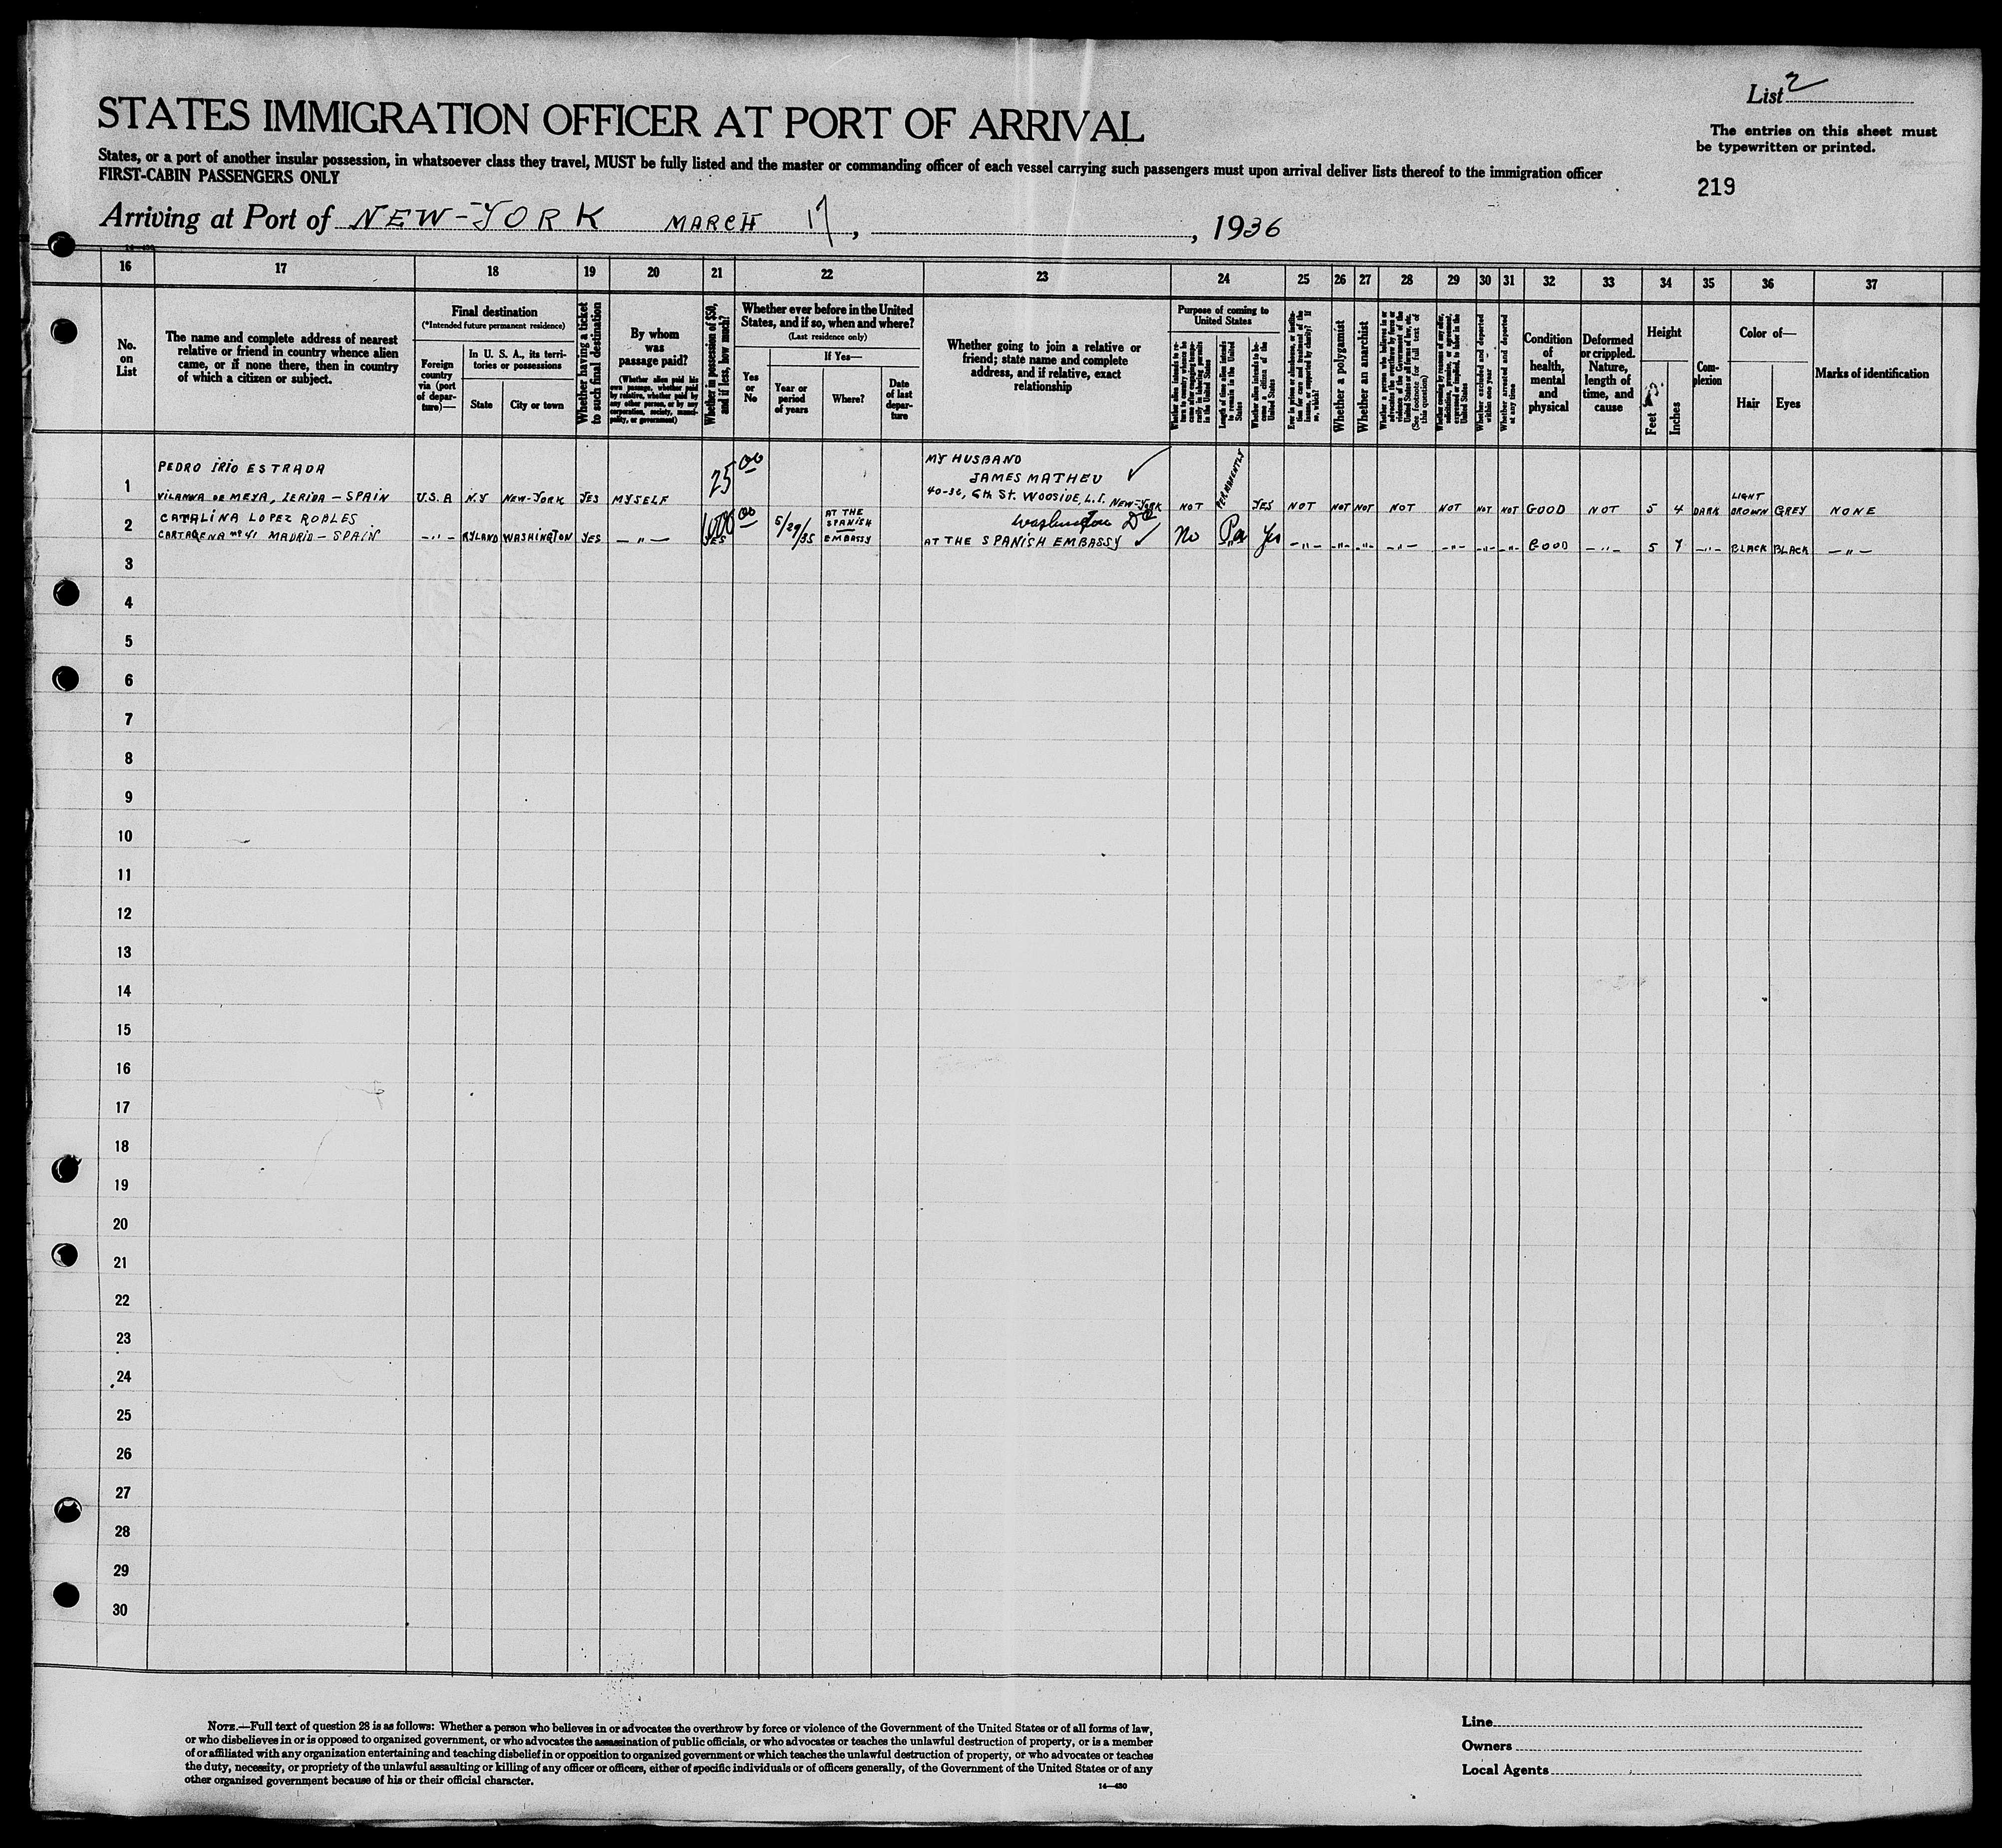 List 2
STATES IMMIGRATION OFFICER AT PORT OF ARRIVAL
The entries on this sheet must
be typewritten or printed.
States, or a port of another insular possession, in whatsoever class they travel, MUST be fully listed and the master or commanding officer of each vessel carrying such passengers must upon arrival deliver lists thereof to the immigration officer
FIRST-CABIN PASSENGERS ONLY
219
Arriving at Port of NEW-YORK MARCH 17, , 1936
16 17 18 19 20 21 22 23 24 25 26 27 28 29 30 31 32 33 34 35 36 37
No.
on
List
The name and complete address of nearest
relative or friend in country whence alien
came, or if none there, then in country
of which a citizen or subject.
Final destination
(*Intended future permanent residence)
Foreign
country
via (port
of depar-
ture)—
In U. S. A., its terri-
tories or possessions
State
City or town
Whether having a ticket
to such final destination
By whom
was
passage paid?
(Whether alien paid his
own passage, whether paid
by relative, whether paid by
any other person, or by any
corporation, society, munici-
pality, or government)
Whether in possession of $50,
and if less, how much?
Whether ever before in the United
States, and if so, when and where?
(Last residence only)
Yes
or
No
If Yes—
Year or
period
of years
Where?
Date
of last
depar-
ture
Whether going to join a relative or
friend; state name and complete
address, and if relative, exact
relationship
Purpose of coming to
United States
Whether alien intends to re-
turn to country whence he
came after engaging tempo-
rarily in laboring pursuits
in the United States
Length of time alien intends
to remain in the United
States
Whether alien intends to be-
come a citizen of the
United States
Ever in prison or almshouse, or institu-
tion for care and treatment of the
insane, or supported by charity? If
so, which?
Whether a polygamist
Whether an anarchist
Whether a person who believes in or
advocates the overthrow by force or
violence of the Government of the
United States or all forms of law, etc.
(See footnote for full text of
this question)
Whether coming by reason of any offer,
solicitation, promise, or agreement,
expressed or implied, to labor in the
United States
Whether excluded and deported
within one year
Whether arrested and deported
at any time
Condition
of
health,
mental
and
physical
Deformed
or crippled.
Nature,
length of
time, and
cause
Height
Feet
Inches
Com-
plexion
Color of—
Hair
Eyes
Marks of identification
1 PEDRO IRIO ESTRADA
VILANOVA DE MEYA, LERIDA — SPAIN U.S.A N.Y NEW-YORK YES MYSELF 25 00
MY HUSBAND
JAMES MATHEU
6th St. WOOSIDE, L.I. NEW-YORK NOT PERMANENTLY YES NOT NOT NOT NOT NOT NOT NOT GOOD NOT 5 4 DARK LIGHT BROWN GREY NONE
2 CATALINA LOPEZ ROBLES
CARTAGENA nº 41 MADRID — SPAIN —"— RYLAND WASHINGTON YES —"— YES 1000 00 5/29/35 AT THE SPANISH EMBASSY
Washington DC
AT THE SPANISH EMBASSY No Per Yes —"— —"— —"— —"— —"— —"— —"— GOOD —"— 5 7 —"— BLACK BLACK —"—
3
4
5
6
7
8
9
10
11
12
13
14
15
16
17
18
19
20
21
22
23
24
25
26
27
28
29
30
NOTE.—Full text of question 28 is as follows: Whether a person who believes in or advocates the overthrow by force or violence of the Government of the United States or of all forms of law,
or who disbelieves in or is opposed to organized government, or who advocates the assassination of public officials, or who advocates or teaches the unlawful destruction of property, or is a member
of or affiliated with any organization entertaining and teaching disbelief in or opposition to organized government or which teaches the unlawful destruction of property, or who advocates or teaches
the duty, necessity, or propriety of the unlawful assaulting or killing of any officer or officers, either of specific individuals or of officers generally, of the Government of the United States or of any
other organized government because of his or their official character.
14—430
Line
Owners
Local Agents